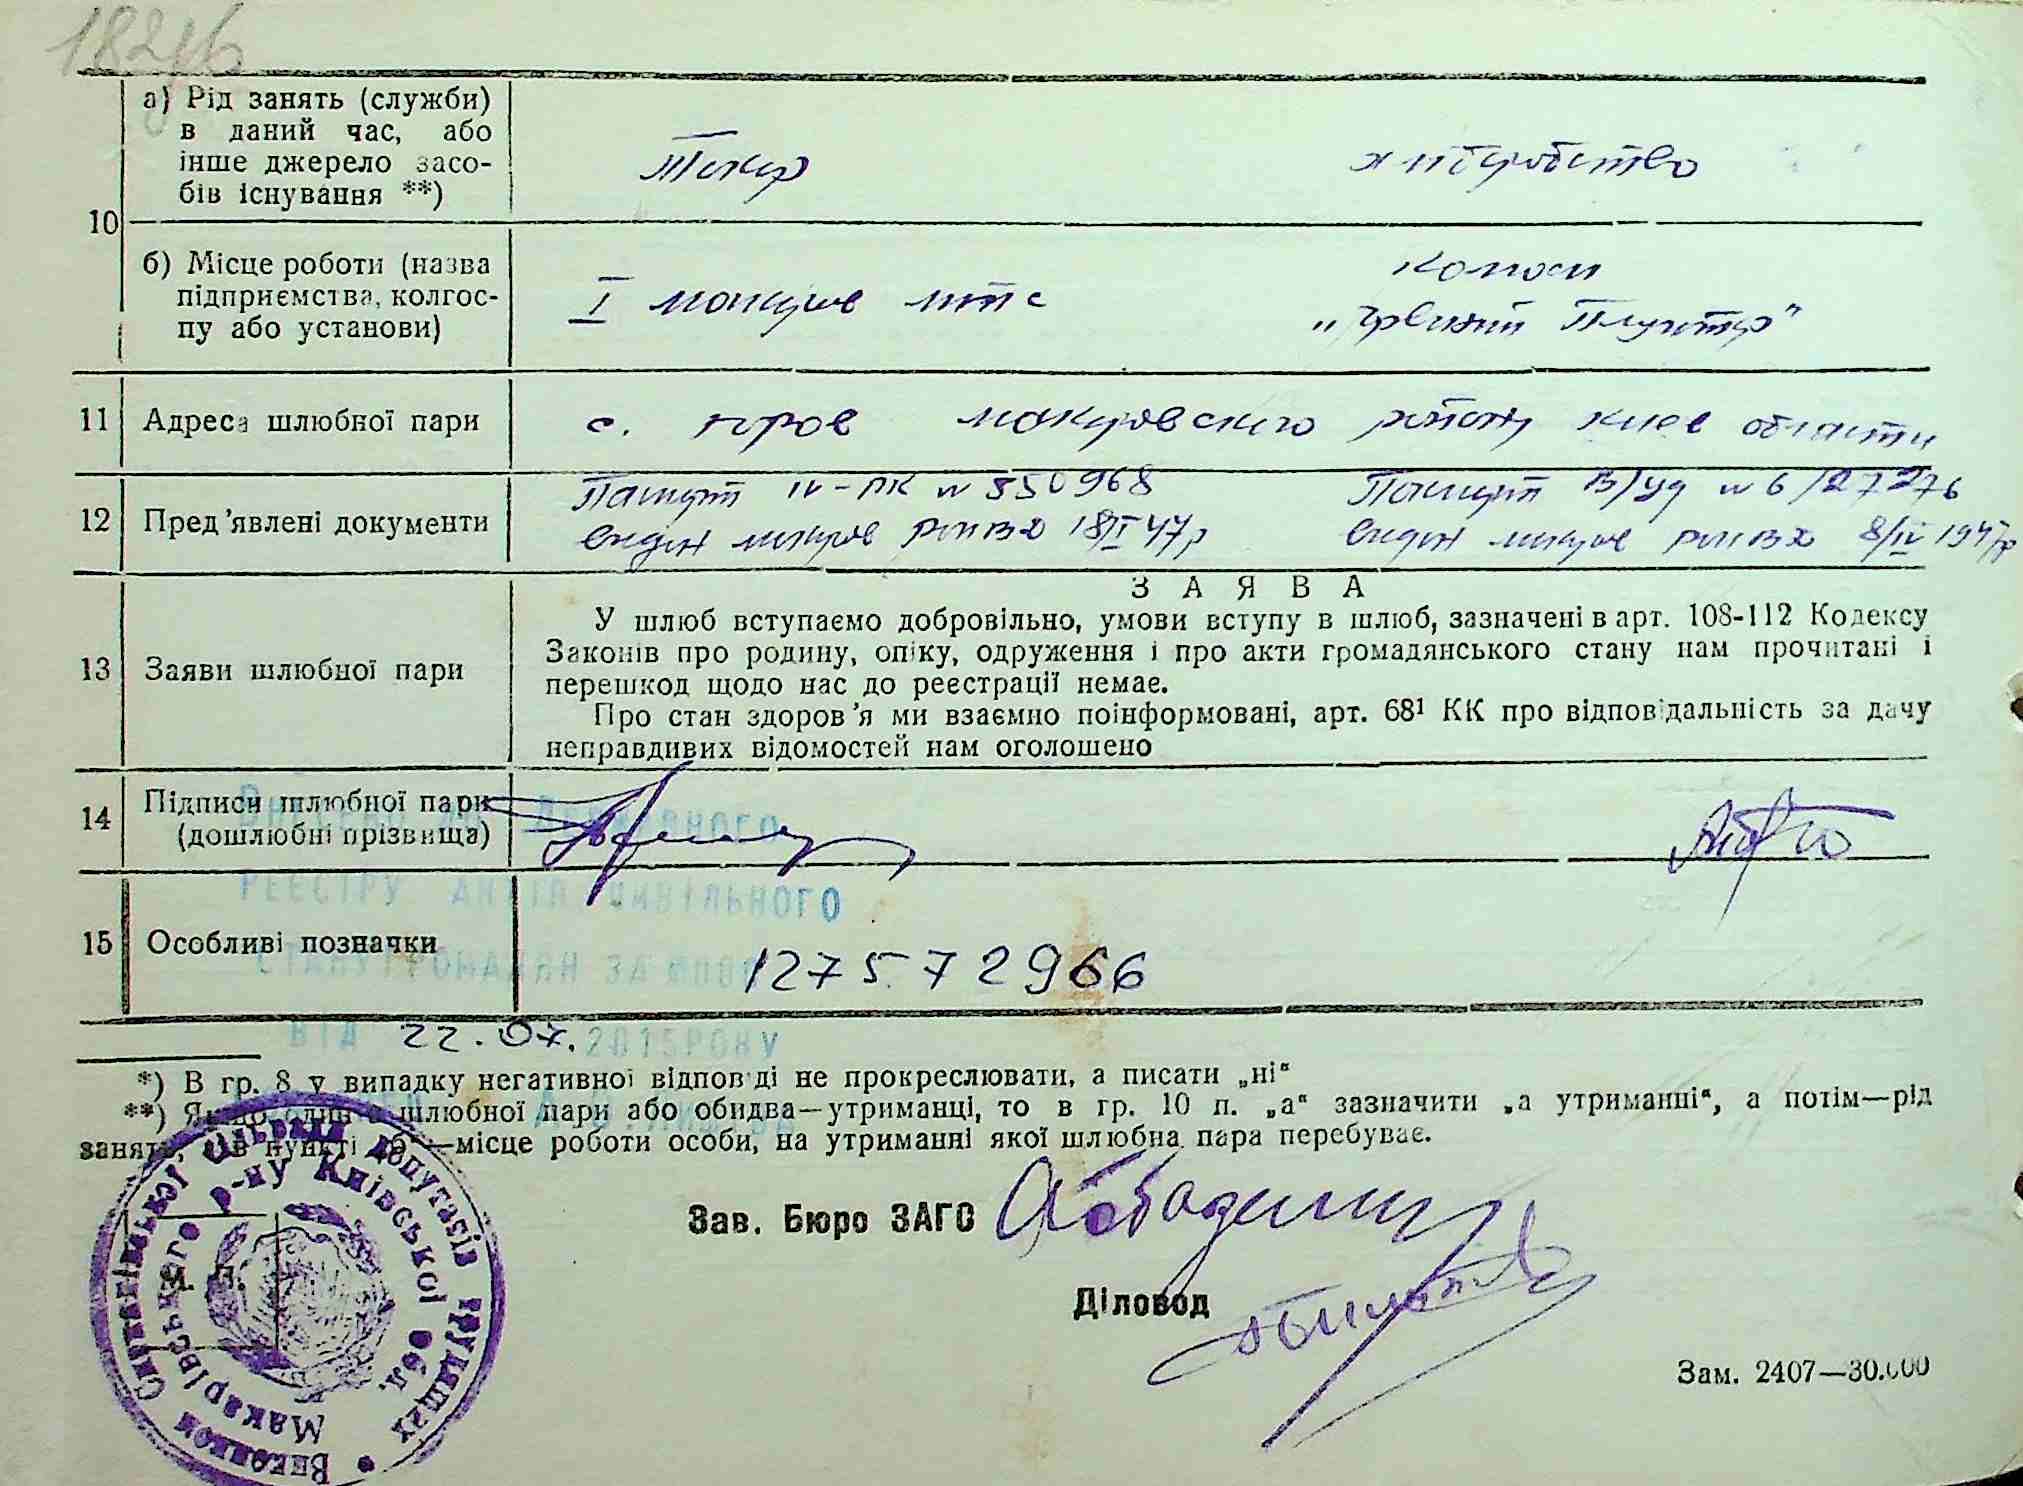 182зв
а) Рід занять (служби)
в даний час, або
інше джерело засо-
бів існування **)
Токар
хліборобство
10
б) Місце роботи (назва
підприємства, колгос-
пу або установи)
I макарів мтс
колгосп
„Червоний Плугатар"
11 Адреса шлюбної пари
с. Юров макаровского району киев области
12 Пред'явлені документи
Паспорт IV-ПК № 550968
Паспорт В/уд № 6/27276
видан макаров РМВД 18/II 47р
видан макаров РМВД 8/IV 1947р
ЗАЯВА
13 Заяви шлюбної пари
У шлюб вступаємо добровільно, умови вступу в шлюб, зазначені в арт. 108-112 Кодексу
Законів про родину, опіку, одруження і про акти громадянського стану нам прочитані і
перешкод щодо нас до реєстрації немає.
Про стан здоров'я ми взаємно поінформовані, арт. 68¹ КК про відповідальність за дачу
неправдивих відомостей нам оголошено
14 Підписи шлюбної пари
(дошлюбні прізвища)
Внесено до Державного
реєстру актів цивільного
стану громадян за №
15 Особливі позначки
127572966
від 22.07. 2015 року
*) В гр. 8 у випадку негативної відповіді не прокреслювати, а писати „ні"
**) Якщо один з шлюбної пари або обидва—утриманці, то в гр. 10 п. „а" зазначити „а утриманні", а потім—рід
занять, а в пункті „б"—місце роботи особи, на утриманні якої шлюбна пара перебуває.
Зав. Бюро ЗАГС
Діловод
М. П.
Виконком Ситняківської сільради депутатів трудящих
Макарівського р-ну Київської обл.
Зам. 2407—30.000